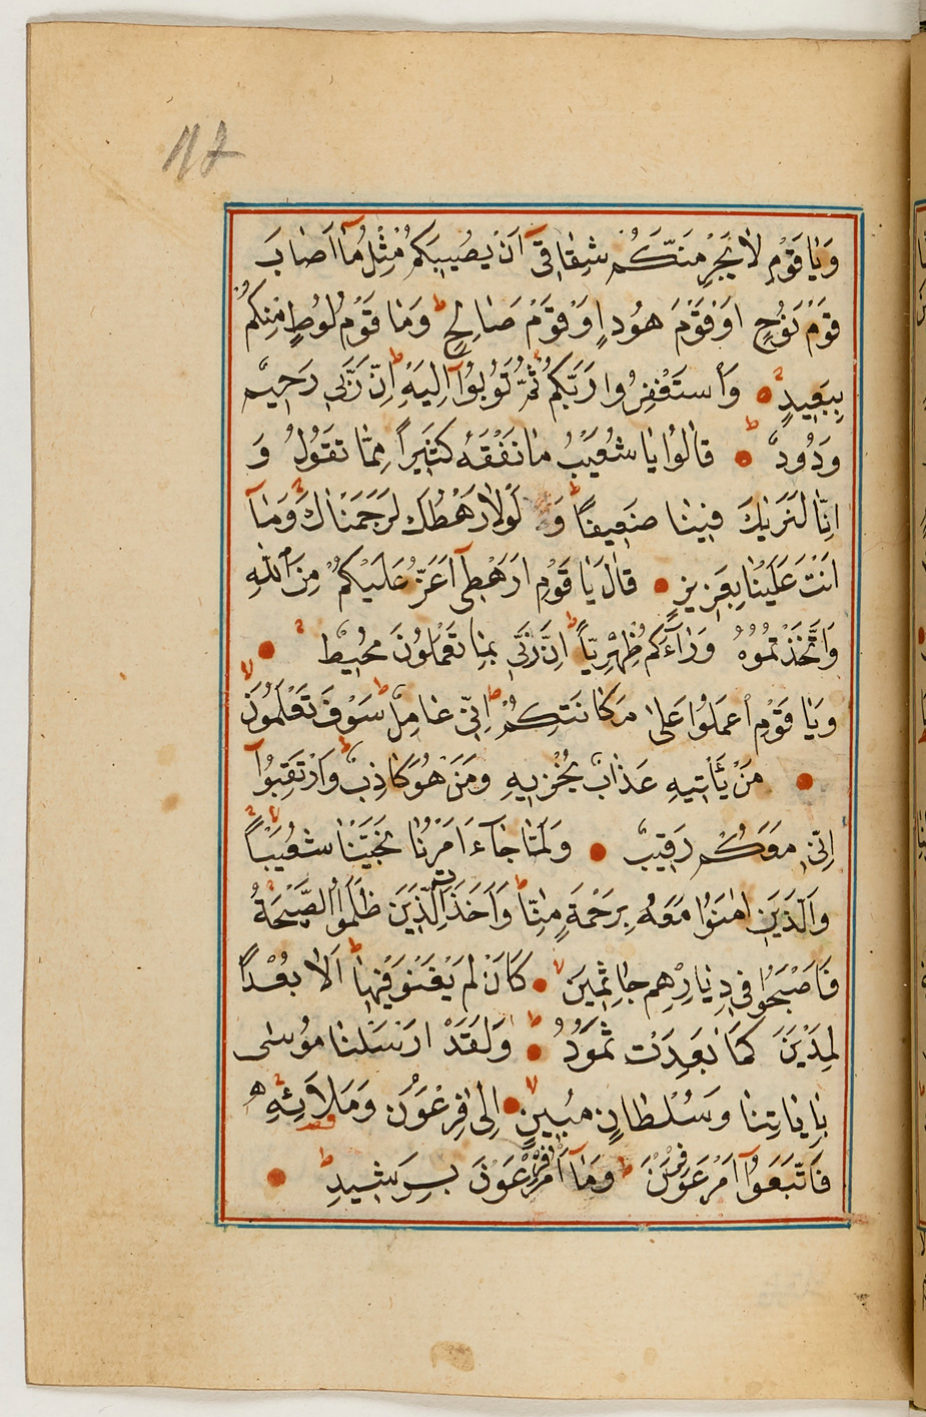 117
وَيَا قَوْمِ لَا يَجْرِمَنَّكُمْ شِقَاقِىٓ اَنْ يُصٖيبَكُمْ مِثْلُ مَآ اَصَابَ
قَوْمَ نُوحٍ اَوْ قَوْمَ هُودٍ اَوْ قَوْمَ صَالِحٍ ط وَمَا قَوْمُ لُوطٍ مِنْكُمْ
بِبَعٖيدٍ وَاسْتَغْفِرُوا رَبَّكُمْ ثُمَّ تُوبُوٓا اِلَيْهِ ط اِنَّ رَبّٖى رَحٖيمٌ
وَدُودٌ ط قَالُوا يَا شُعَيْبُ مَا نَفْقَهُ كَثٖيرًا مِمَّا تَقُولُ وَ
اِنَّا لَنَرٰيكَ فٖينَا ضَعٖيفًا ط وَ لَوْلَا رَهْطُكَ لَرَجَمْنَاكَ وَمَآ
اَنْتَ عَلَيْنَا بِعَزٖيزٍ قَالَ يَا قَوْمِ اَرَهْطٖىٓ اَعَزُّ عَلَيْكُمْ مِنَ اللّٰهِ
وَاتَّخَذْتُمُوهُ وَرَآءَكُمْ ظِهْرِيًّا ط اِنَّ رَبّٖى بِمَا تَعْمَلُونَ مُحٖيطٌ
وَيَا قَوْمِ اعْمَلُوا عَلٰى مَكَانَتِكُمْ اِنّٖى عَامِلٌ ط سَوْفَ تَعْلَمُونَ لا
مَنْ يَأْتٖيهِ عَذَابٌ يُخْزٖيهِ وَمَنْ هُوَ كَاذِبٌ ط وَارْتَقِبُوٓا
اِنّٖى مَعَكُمْ رَقٖيبٌ وَلَمَّا جَآءَ اَمْرُنَا نَجَّيْنَا شُعَيْبًا
وَالَّذٖينَ اٰمَنُوا مَعَهُ بِرَحْمَةٍ مِنَّا وَاَخَذَتِ الَّذٖينَ ظَلَمُوا الصَّيْحَةُ
فَاَصْبَحُوا فٖى دِيَارِهِمْ جَاثِمٖينَ لا كَاَنْ لَمْ يَغْنَوْا فٖيهَا ط اَلَا بُعْدًا
لِمَدْيَنَ كَمَا بَعِدَتْ ثَمُودُ ط وَلَقَدْ اَرْسَلْنَا مُوسٰى
بِاٰيَاتِنَا وَسُلْطَانٍ مُبٖينٍ لا اِلٰى فِرْعَوْنَ وَمَلَائِهٖ
فَاتَّبَعُوٓا اَمْرَ فِرْعَوْنَ ط وَمَآ اَمْرُ فِرْعَوْنَ بِرَشٖيدٍ ط